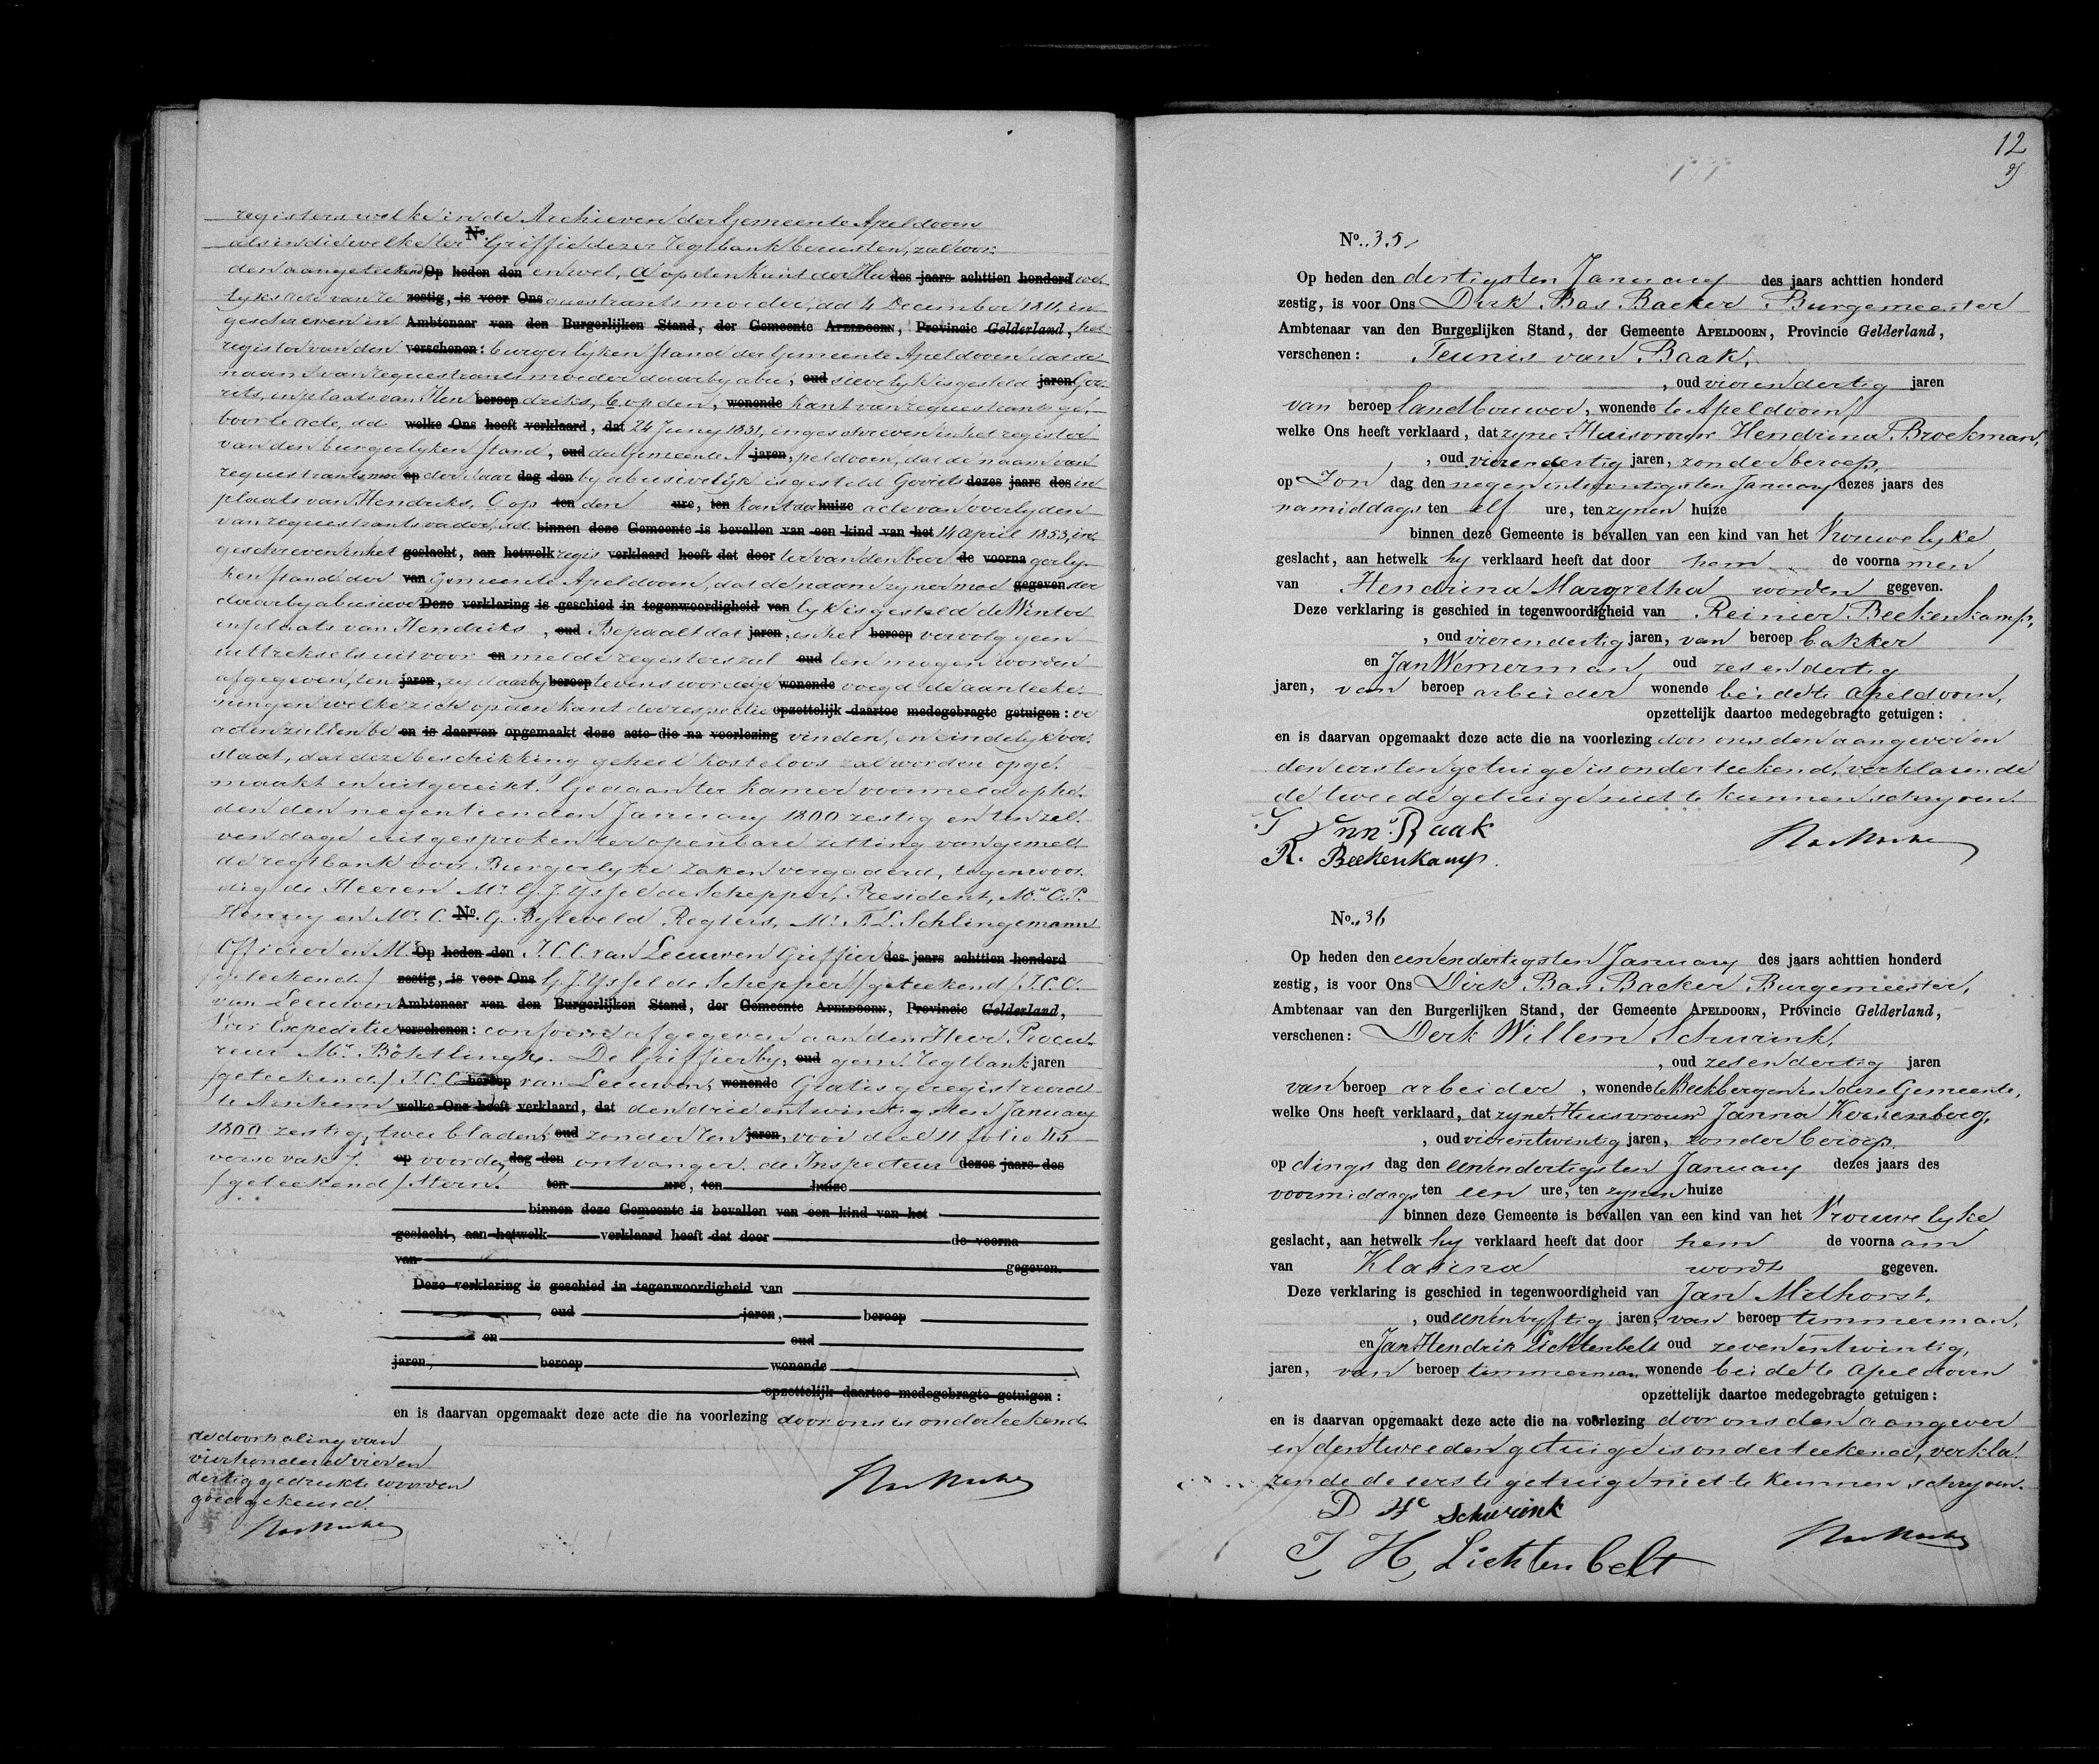 registers welke in de Archieven der Gemeente Apeldoorn
als in die welke ter No. Griffie dezer regtbank berusten, zal wor-
den aangeteekend, Op heden den en wel, a op den kant der Hu des jaars achttien honderd we-
lyks acte van re zestig, is voor Ons questrants moeder, dd 4 December 1811, in
geschreven in Ambtenaar van den Burgerlijken Stand, der Gemeente Apeldoorn, Provincie Gelderland, het
register van den verschenen: burgerlyken stand der Gemeente Apeldoorn dat de
naam van requestrants moeder daarby abu, oud sievelyk is gesteld jaren Gor-
rits, in plaats van Hen beroep driks, b op den, wonende kant van requestrants ge-
boorte acte, dd welke Ons heeft verklaard, dat 24 Juny 1831, ingeschreven in het register
van den burgerlyken stand, oud der Gemeente A jaren, peldoorn, dat de naam van
requestrants moe op der daar dag den by abusivelijk is gesteld Gorrits dezes jaars des in
plaats van Hendriks, C op ten den ure, ten kant der huize acte van overlyden
van requestrants vader, dd binnen deze Gemeente is bevallen van een kind van het 14 april 1853, in
geschreven in het geslacht, aan hetwelk regis verklaard heeft dat door ter van den bur de voorna gerly-
ken stand der van Gemeente Apeldoorn, dat de naam zyner moe gegeven der
daarby abusieve Deze verklaring is geschied in tegenwoordigheid van lyk is gesteld de Winter
in plaats van Hendriks, oud Bepaalt dat jaren, in het beroep vervolg geen
uittreksels uit voor en melde registers zul oud len mogen worden
afgegeven, ten jaren, zy daarby beroep tevens worden wonende voegd de aanteeke-
ningen welke zich op den kant der respectie opzettelijk daartoe medegebragte getuigen: ve
acten zullen be en is daarvan opgemaakt deze acte die na voorlezing vinden, en eindelyk ver-
staat, dat deze beschikking geheel kosteloos zal worden opge-
maakt en uitgereikt. Gedaan ter kamer voormeld op he-
den den negentienden January 1800 zestig en ten zel-
ven dage uitgesproken ter openbare zitting van gemelde
de regtbank voor Burgerlyke zaken vergaderd, tegenwoor-
dig de Heeren Mr. G. J. Yssel de Schepper, President, Mr. C. P.
Henny en Mr. C. No. G. Byleveld Regters, Mr. F. L. Schlingemann
Officier en Mr. Op heden den J. C. C. van Leeuwen Griffier des jaars achttien honderd
/geteekend/ zestig, is voor Ons G. J. Yssel de Schepper /geteekend/ J. C. C.
van Leeuwen Ambtenaar van den Burgerlijken Stand, der Gemeente Apeldoorn, Provincie Gelderland,
Voor Expeditie verschenen: conform afgegeven aan den Heer Procu-
reur Mr. Böhtlingk. De Griffier by, oud gem. regtbank jaren
/geteekend/ J. C. C. beroep van Leeuwen, wonende Gratis geregistreerd
te Arnhem welke Ons heeft verklaard, dat den drie entwintigsten January
1800 zestig, twee bladen, oud zonder ren jaren, voir deel 11 folio 45
verso vak 7. op voor de, dag den ontvanger. de Inspecteur dezes jaars des
/geteekend/ Stern. ten ure, ten huize
binnen deze Gemeente is bevallen van een kind van het
geslacht, aan hetwelk verklaard heeft dat door de voorna
van gegeven.
Deze verklaring is geschied in tegenwoordigheid van
, oud jaren, beroep
en oud
jaren, beroep wonende
opzettelijk daartoe medegebragte getuigen:
en is daarvan opgemaakt deze acte die na voorlezing door ons is onderteekend.
de doorhaling van
vierhonderd vier en
dertig gedrukte woorden
goedgekeurd.
12
No. 35
Op heden den dertigsten January des jaars achttien honderd
zestig, is voor Ons Dirk Bas Backer Burgemeester
Ambtenaar van den Burgerlijken Stand, der Gemeente Apeldoorn, Provincie Gelderland,
verschenen: Teunis van Baak,
, oud vierendertig jaren
van beroep landbouwer, wonende te Apeldoorn,
welke Ons heeft verklaard, dat zyne Huisvrouw Hendrina Broekman,
, oud vierendertig jaren, zonder beroep,
op Zon dag den negenentwintigsten January dezes jaars des
namiddags ten elf ure, ten zynen huize
binnen deze Gemeente is bevallen van een kind van het Vrouwelyke
geslacht, aan hetwelk hy verklaard heeft dat door hem de voorna men
van Hendrina Margretha worden gegeven.
Deze verklaring is geschied in tegenwoordigheid van Reinier Beekenkamp,
, oud vierendertig jaren, van beroep bakker
en Jan Wemerman, oud zesendertig
jaren, van beroep arbeider wonende beide te Apeldoorn,
opzettelijk daartoe medegebragte getuigen:
en is daarvan opgemaakt deze acte die na voorlezing door ons den aangever en
den eersten getuige is onderteekend, verklarende
de tweede getuige niet te kunnen schryven.
T Vnn Baak
R. Beekenkamp.
No. 36
Op heden den eenendertigsten January des jaars achttien honderd
zestig, is voor Ons Dirk Bas Backer Burgemeester,
Ambtenaar van den Burgerlijken Stand, der Gemeente Apeldoorn, Provincie Gelderland,
verschenen: Derk Willem Schurink,
, oud zesendertig jaren
van beroep arbeider, wonende te Beekbergen in deze Gemeente,
welke Ons heeft verklaard, dat zyne Huisvrouw Janna Kouenberg,
, oud vierentwintig jaren, zonder beroep.
op dings dag den eenendertigsten January dezes jaars des
voormiddags ten een ure, ten zynen huize
binnen deze Gemeente is bevallen van een kind van het Vrouwelyke
geslacht, aan hetwelk hy verklaard heeft dat door hem de voorna am
van Klasina wordt gegeven.
Deze verklaring is geschied in tegenwoordigheid van Jan Melhorst,
, oud eenenvyftig jaren, van beroep timmerman,
en Jan Hendrik Lichtenbelt oud zevenentwintig,
jaren, van beroep timmerman, wonende beide te Apeldoorn
opzettelijk daartoe medegebragte getuigen:
en is daarvan opgemaakt deze acte die na voorlezing door ons den aangever
en den tweeden getuige is onderteekend, verkla-
rende de eerste getuige niet te kunnen schryven.
D Schurink
J H Lichtenbelt